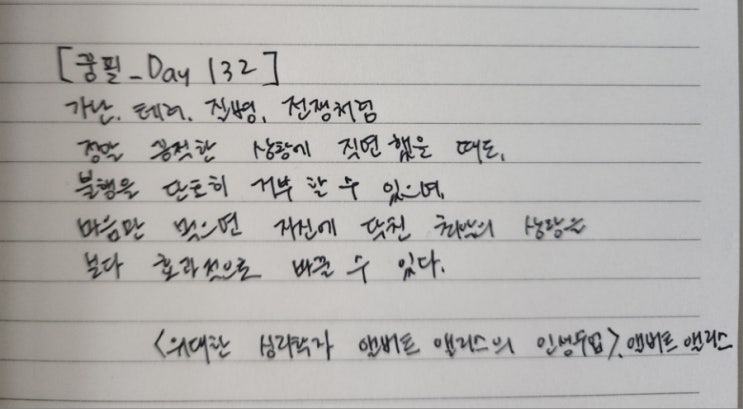 [꿍필_Day 132]
가난. 테러. 질병, 전쟁처럼
정말 끔찍한 상황에 직면했을 때도,
불행을 단호히 거부 할 수 있으며,
마음만 먹으면 자신에 닥친 최악의 상황을
보다 효과적으로 바꿀 수 있다.
<위대한 심리학자 앨버트 앨리스의 인생수업>, 앨버트 앨리스